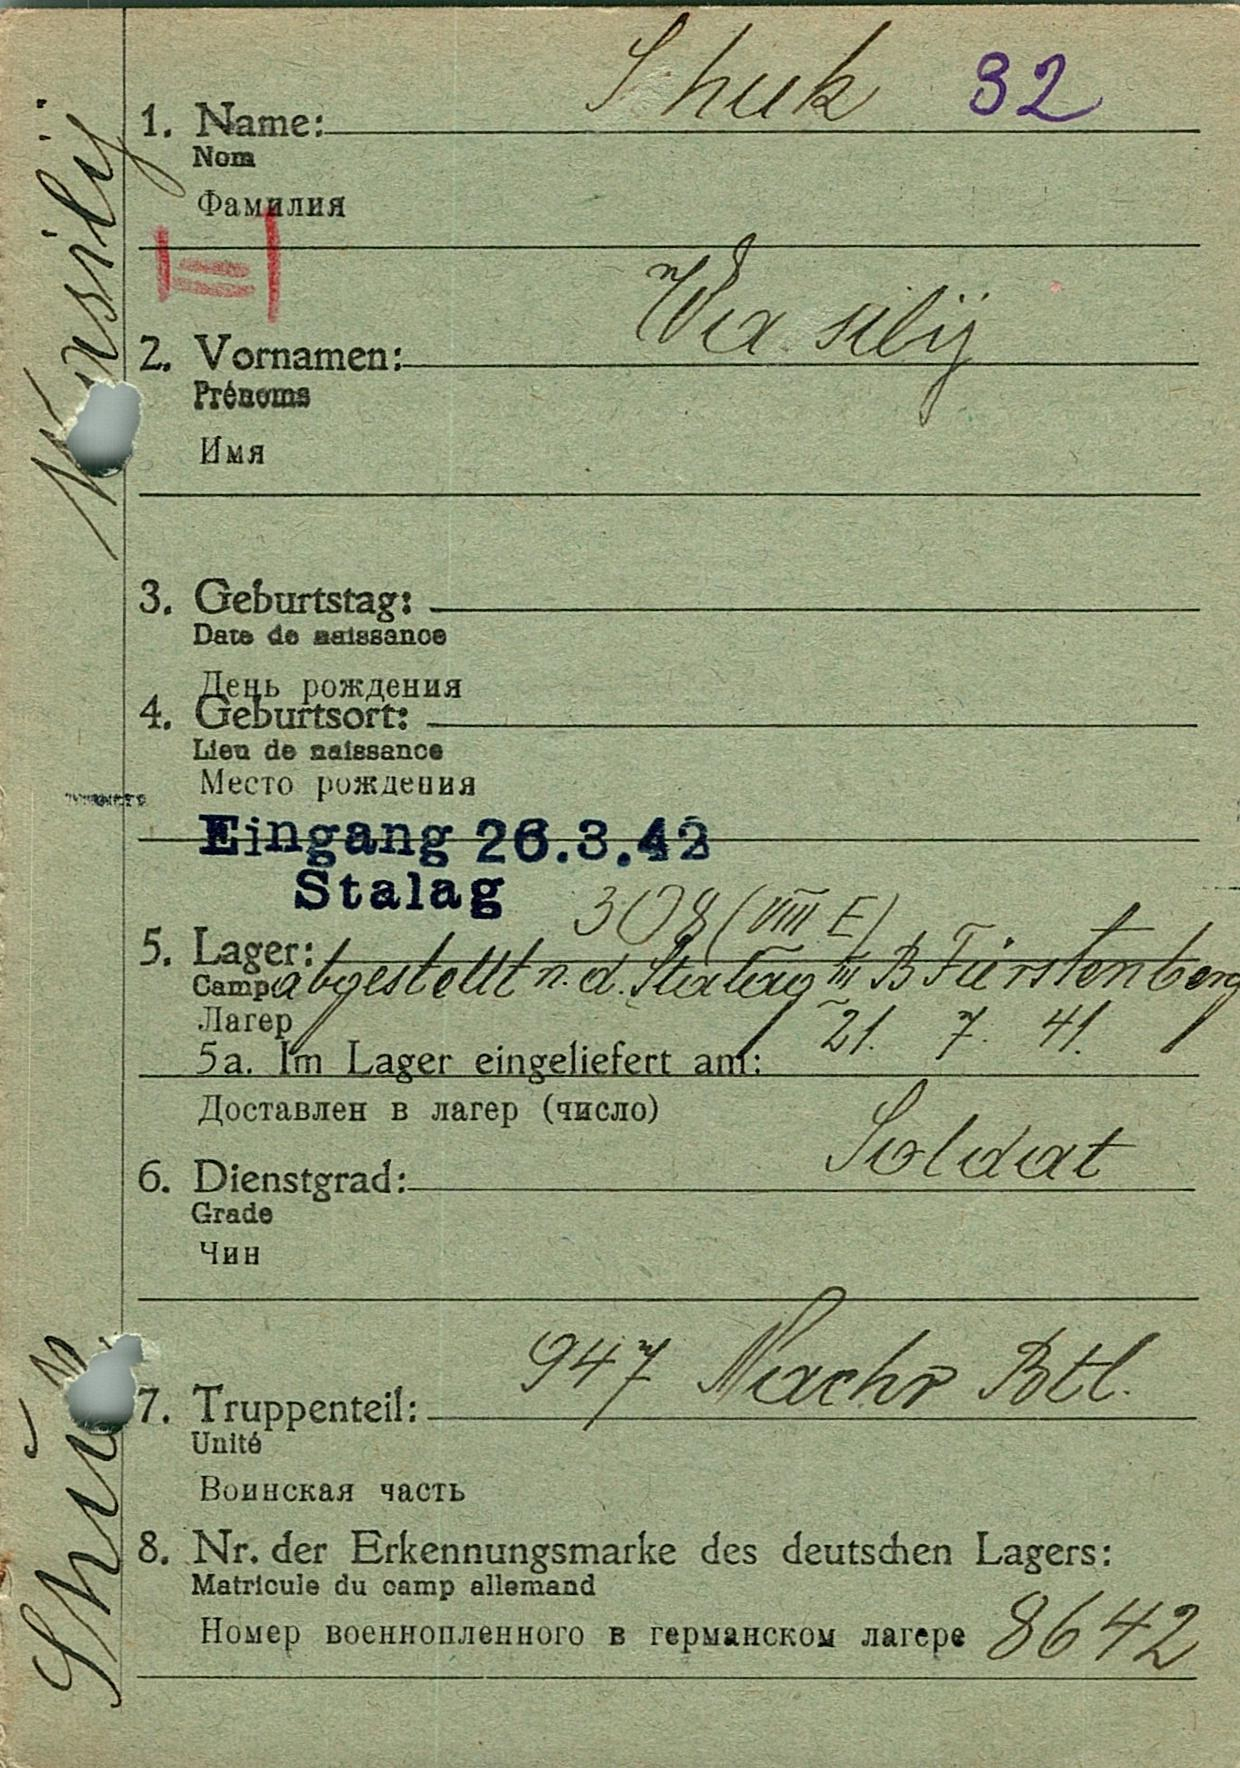 Shuk 32
1. Name:
Nom
Фамилия
Wasilij
2. Vornamen:
Prénoms
Имя
3. Geburtstag:
Date de naissance
День рождения
4. Geburtsort:
Lieu de naissance
Место рождения
Eingang 26.3.42
Stalag
308 (VIII E)
5. Lager: abgestellt n. d. Stalag III B Fürstenberg
Camp
Лагер
21. 7. 41.
5a. Im Lager eingeliefert am:
Доставлен в лагер (число)
Soldat
6. Dienstgrad:
Grade
Чин
947 Nachr Btl.
7. Truppenteil:
Unité
Воинская часть
8. Nr. der Erkennungsmarke des deutschen Lagers:
Matricule du camp allemand
Номер военнопленного в германском лагере 8642
Shuk Wasilij